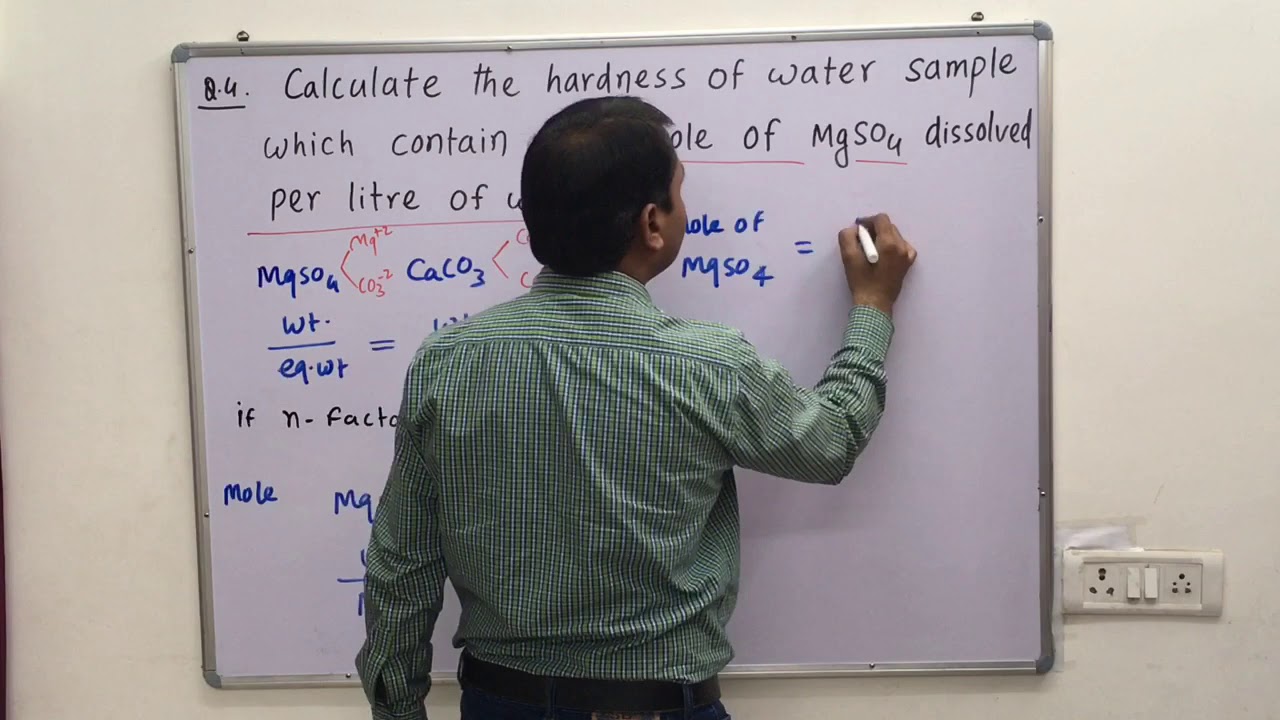 Q.4. Calculate the hardness of water sample
which contain of MgSO4 dissolved
per litre of
MgSO4 Mg+2 CO3-2 CaCO3
of
MgSO4 =
wt. / eq.wt =
if n-
Mole